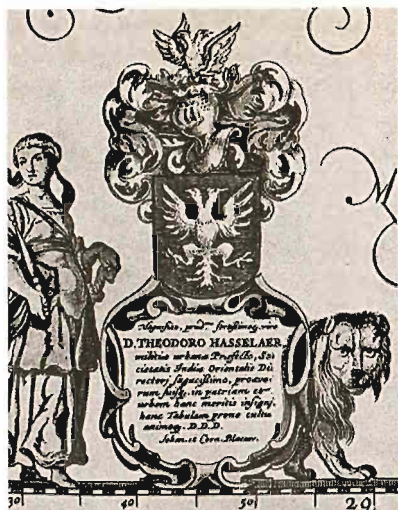 M
Magnifico, prud.mo fortissimoq, viro
D. THEODORO HASSELAER,
militiæ urbanæ Præfecto, So
cietatis Indiæ Orientalis Di
rectori sagacissimo, proavo
rum suisq, in patriam et
urbem hanc meritis insigni,
hanc Tabulam prono cultu
animoq, D.D.D.
Johan. et Corn. Blaeuw.
30 40 50 20